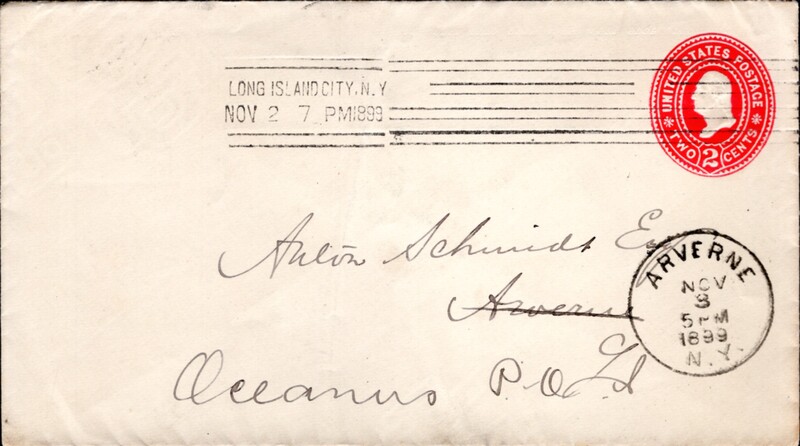 UNITED STATES POSTAGE
TWO 2 CENTS
LONG ISLAND CITY, N.Y
NOV 2 7 PM 1899
Anton Schmidt Esq
Arverne
L I
Oceanus P.O.
ARVERNE
NOV
3
5 PM
1899
N.Y.